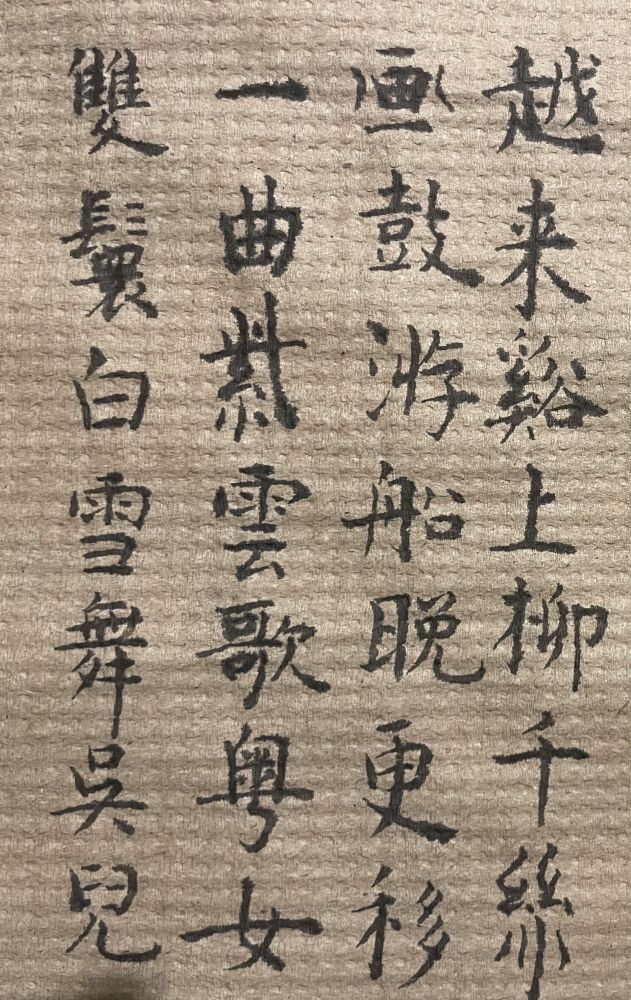 越来谿上柳千絲
画鼓游船晚更移
一曲紫雲歌粤女
雙鬟白雪舞吳兒